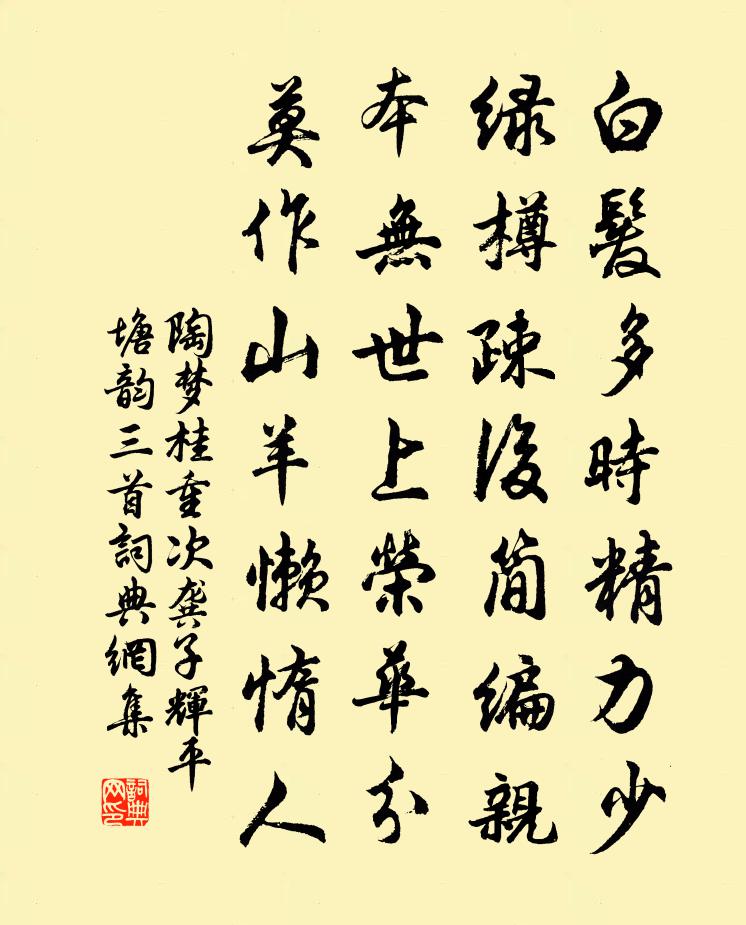 白髮多時精力少
綠樽疎後簡編親
本無世上榮華分
莫作山羊懶惰人
陶梦桂重次龔子輝平
塘韵三首詞典網集
詞典網印